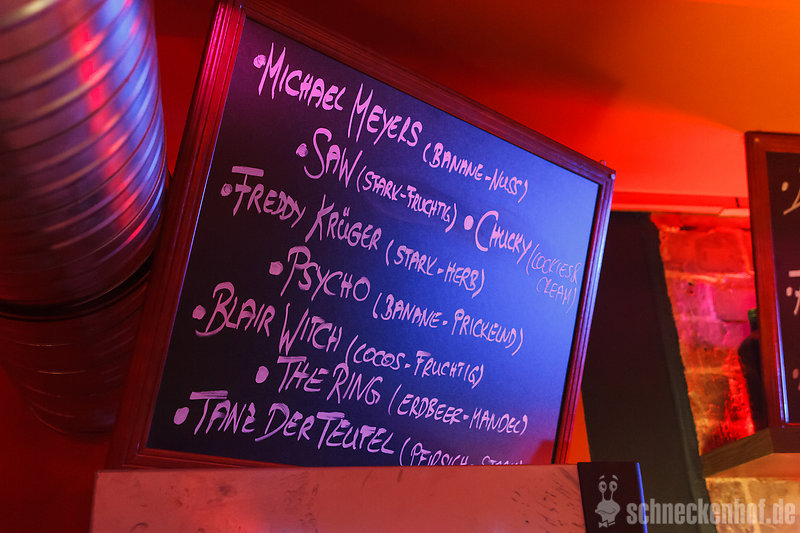 • MICHAEL MEYERS (BANANE-NUSS)
• SAW (STARK-FRUCHTIG) • CHUCKY (COOKIES &
CREAM)
• FREDDY KRÜGER (STARK-HERB)
• PSYCHO (BANANE-PRICKELND)
• BLAIR WITCH (COCOS-FRUCHTIG)
• THE RING (ERDBEER-MANDEL)
• TANZ DER TEUFEL (PFIRSICH-STARK)
schneckenhof.de